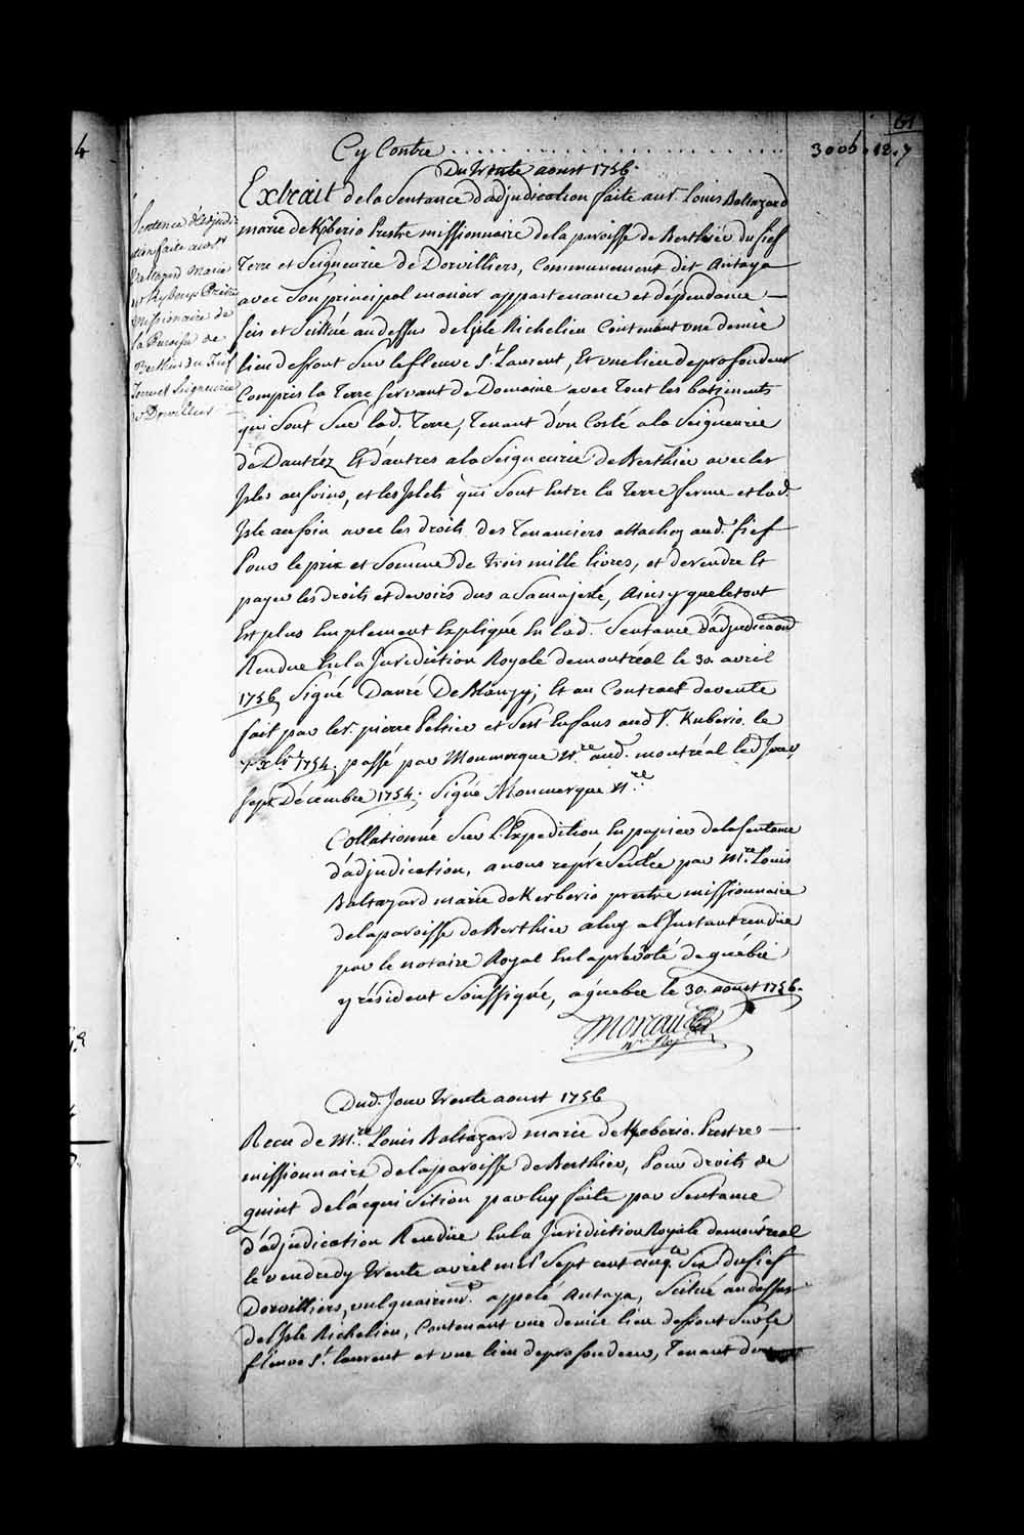 61
4
Cy Contre . . . . . . . . . . . . . . . . 3006. 12. 7
Du trente aoust 1756.
Extrait de la Sentance d'adjudication faite au Sr. Louis Baltazard
marie de Kberio Prestre missionnaire de la paroisse de Berthier du fief
Terre et Seigneurie de Dorvilliers, Communement dit Antaya
avec Son principal manoir appartenance et dépendance
sis et Scittué au dessus de l'isle Richelieu Contenant une demie
lieu de front Sur le fleuve St. Laurent, Et une lieu de profondeur
Compris la Terre servant de Domaine avec Tout les batiments
qui Sont Sur lad. Terre, Tenant d'un Costé a la Seigneurie
de Dautréz Et d'autres a la Seigneurie de Berthier avec les
Isles au foins, et les Islets qui Sont Entre la Terre ferme et lad.
Isle au foin avec les droits des Tenanciers attachez aud. fief
Pour le prix et Somme de trois mille livres, et de rendre Et
payer les droits et devoirs dus a Sa majesté, Ainsy que le tout
Est plus Emplement Expliqué En lad. Sentance d'adjudicaon
Rendue En la Juridiction Royale de montréal le 30 avril
1756 Signé Danré De Blanzy; Et au Contract de vente
fait par le Sr. pierre Peltier et Ses Enfans aud Sr. Kuberio le
7 xbre 1754. passé par Monmerque Nre. aud. montréal led Jour
Sept Décembre 1754. Signé Monmerque Nre.
Sentence d'adjudi=
=tion faite au Sr
Baltazard Marie
Prêtre
Missionaire de
la Paroisse de
Berthier du Fief
Terre et Seigneurie
Dorvilliers
Collationné Sur L'Expedition En papier de la Sentance
d'adjudication, a nous représentée par Mre. Louis
Baltazard marie de Kerberio prestre missionnaire
de la paroisse de Berthier a luy a l'Instant rendüe
par le notaire Royal En la prévôté de québec
y résident Soussigné, a québec le 30. aoust 1756.
Moreau
Nre Roy
Dud. Jour trente aoust 1756
Recu de Mre. Louis Baltazard marie de Kberio. Prestre
missionnaire de la paroisse de Berthier, Pour droits de
quint de l'acquisition par luy faite par Sentance
d'adjudication Rendüe En la Juridiction Royale de montreal
le vendredy trente avril mil Sept cent cinqte Six du fief
Dorvilliers, vulguairemt. appelé Antaya, Scitué au dessus
de l'Isle Richelieu, Contenant une demie lieu de front Sur le
fleuve St. laurent et une lieu de profondeur, Tenant